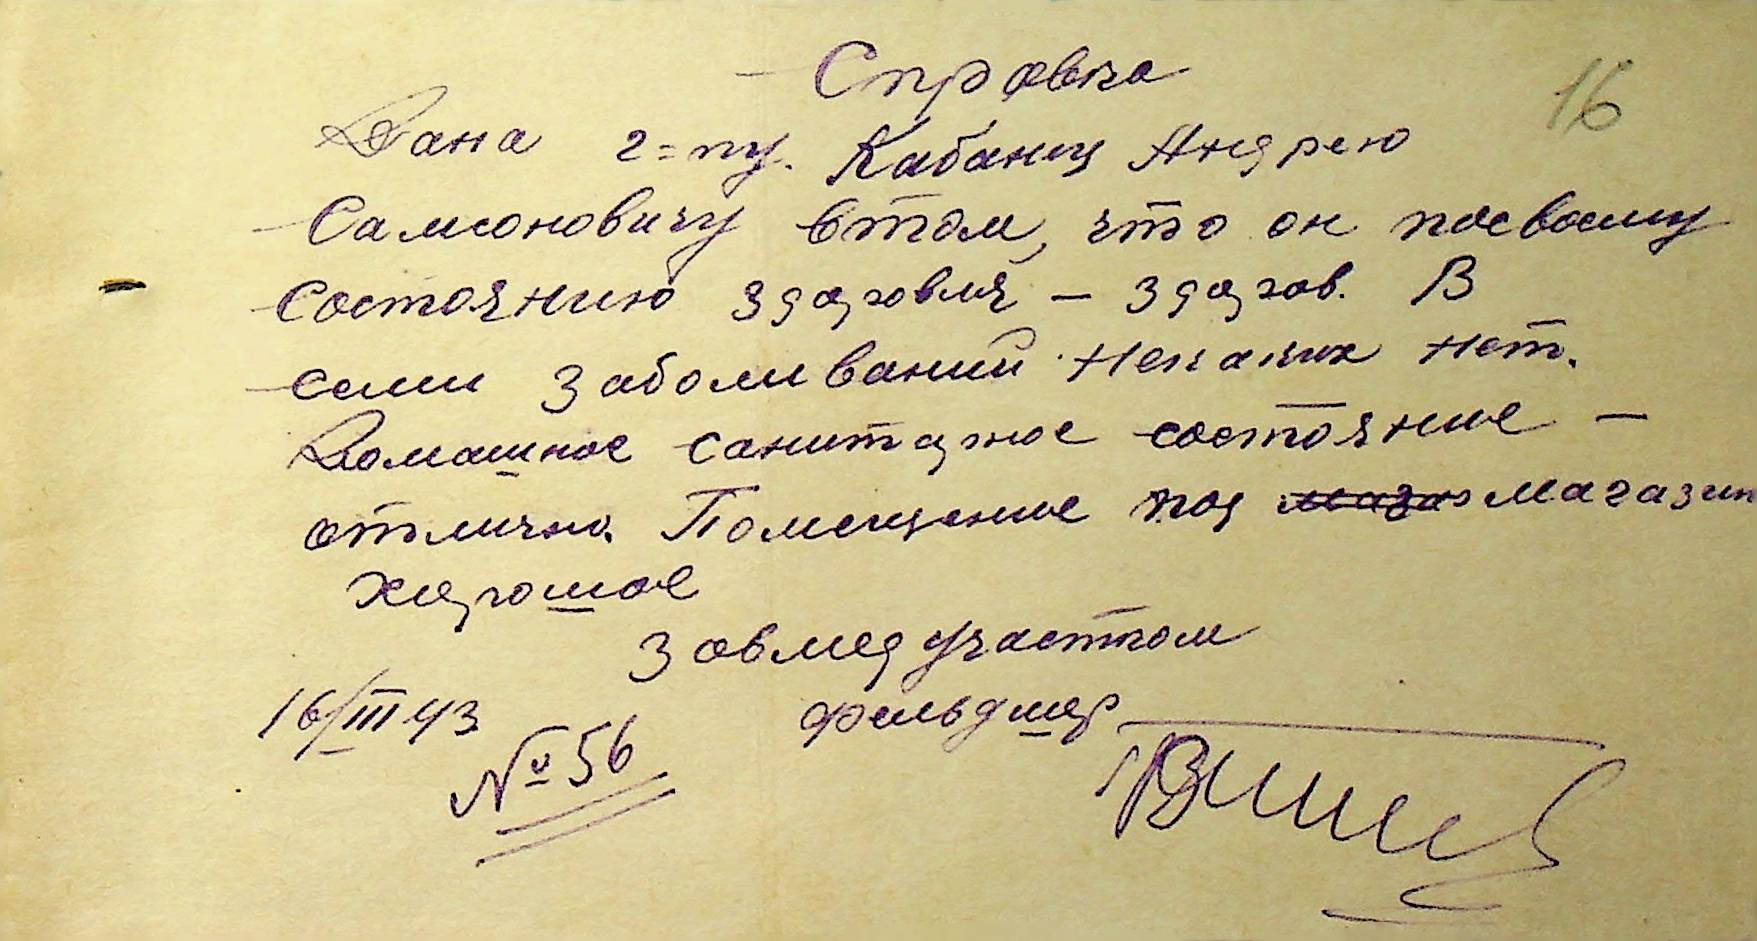 Справка
16
Дана г=ну. Кабанец Андрею
Самсоновичу в том, что он по своему
состоянию здоровля – здоров. В
семи заболиваний некаких нет.
Домашное санитарное состояние –
отлично. Помещение под мага магазин
хорошое
Завмедучастком
16/III 43 фельдшер
№ 56